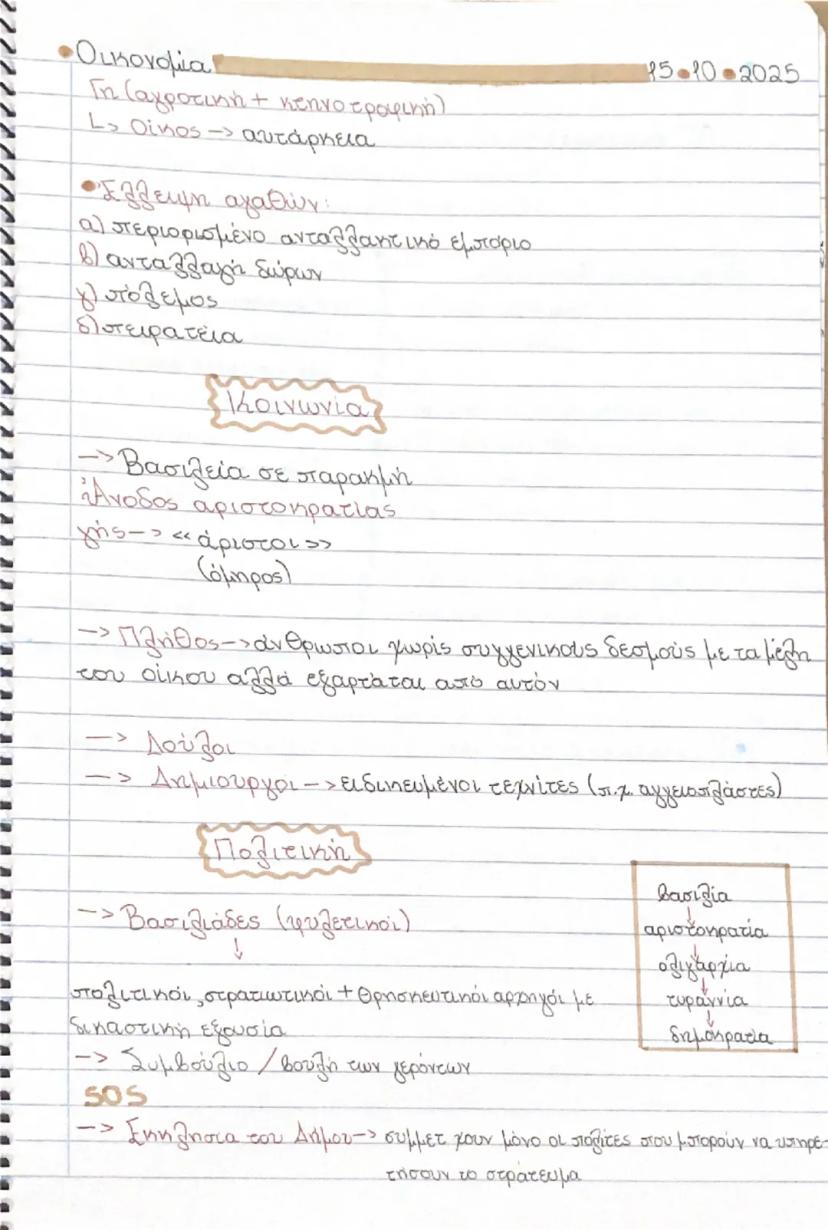 • Οικονομία 15•10•2025
Γη (αγροτική + κτηνοτροφική)
↳ Οίκος -> αυτάρκεια
• Έλλειψη αγαθών:
α) περιορισμένο ανταλλακτικό εμπόριο
β) ανταλλαγή δώρων
γ) πόλεμος
δ) πειρατεία
Κοινωνία
-> Βασιλεία σε παρακμή
Άνοδος αριστοκρατίας
γης -> «άριστοι»
(όμηρος)
-> Πλήθος -> άνθρωποι χωρίς συγγενικούς δεσμούς με τα μέλη
του οίκου αλλά εξαρτάται από αυτόν
-> Δούλοι
-> Δημιουργοι -> ειδικευμένοι τεχνίτες (π.χ. αγγειοπλάστες)
Πολιτική
-> Βασιλιάδες (φυλετικοί)
↓
πολιτικοί, στρατιωτικοί + θρησκευτικοί αρχηγοί με
δικαστική εξουσία
-> Συμβούλιο / βουλή των γερόντων
SOS
-> Εκκλησια του Δήμου -> συμμετ χουν μόνο οι πολίτες που μπορούν να υπηρε-
τήσουν το στράτευμα
βασιλία
↓
αριστοκρατία
↓
ολιγαρχία
↓
τυραννία
↓
δημοκρατία